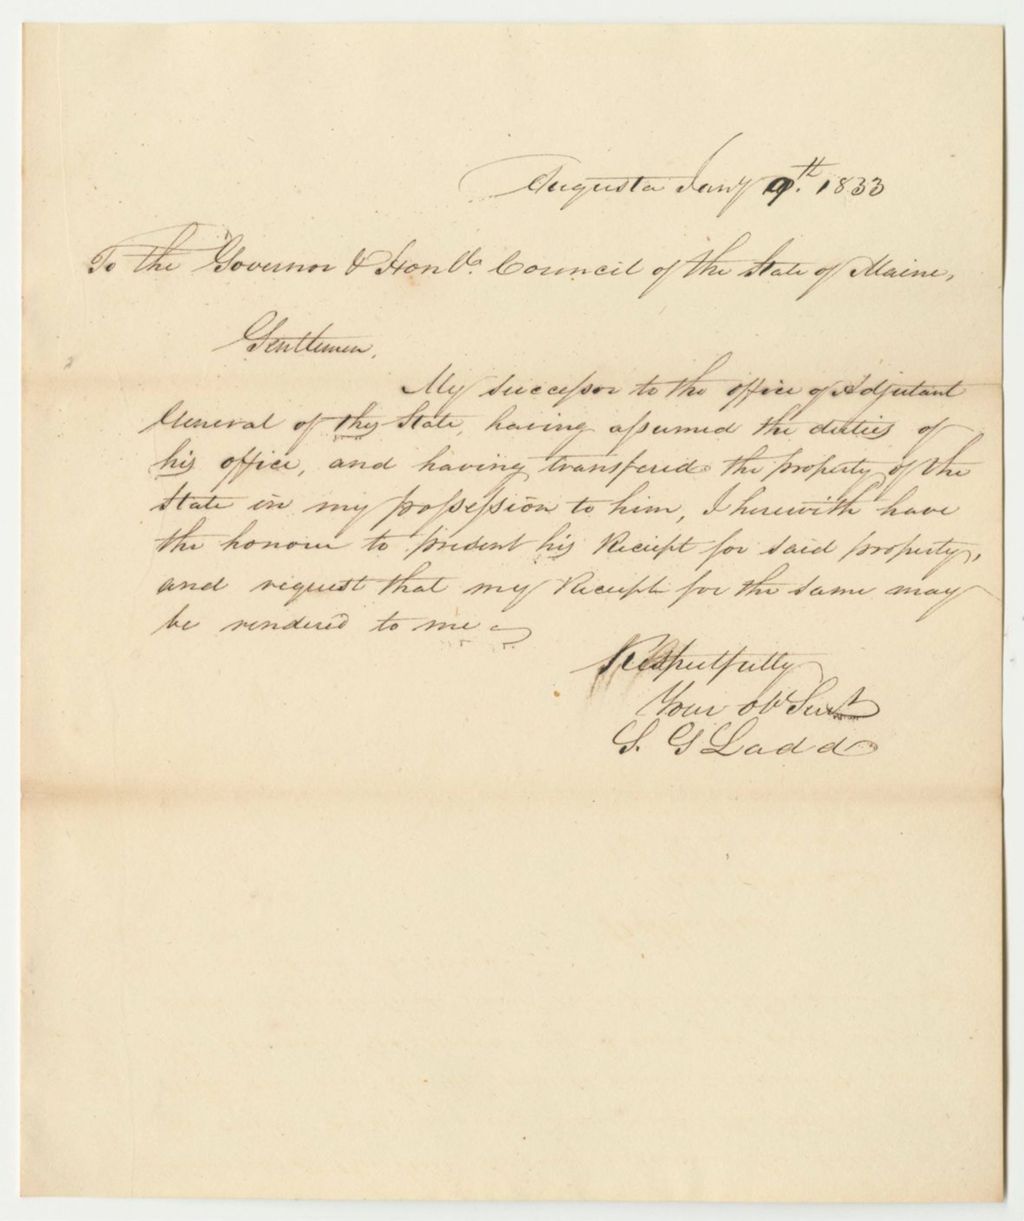 Augusta Jany 9th. 1833
To the Governor & Honble. Council of the State of Maine,
Gentlemen,
My successor to the office of Adjutant
General of this State, having assumed the duties of
his office, and having transfered the property of the
State in my possession to him, I herewith have
the honour to present his Reciept for said property,
and request that my Reciept for the same may
be rendered to me
Respectfully
Your obt Servt
S. G Ladd